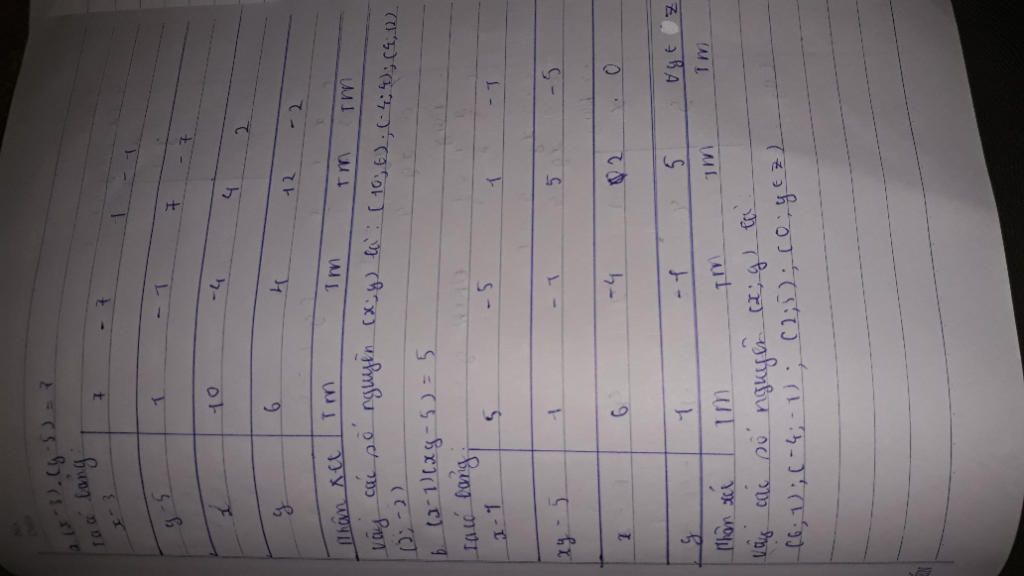 a. (x-3).(y-5) = 7
Ta có bảng:
x-3 7 -7 1 -1
y-5 1 -1 7 -7
x 10 -4 4 2
y 6 4 12 -2
Nhận xét TM TM TM TM
Vậy các số nguyên (x;y) là: (10;6); (-4;4); (4;12)
(2;-2)
b. (x-1)(xy-5) = 5
Ta có bảng:
x-1 5 -5 1 -1
xy-5 1 -1 5 -5
x 6 -4 2 0
y 1 -1 5 ∀y∈ Z
Nhận xét TM TM TM TM
Vậy các số nguyên (x;y) là
(6;1); (-4;-1); (2;5); (0;y∈Z)